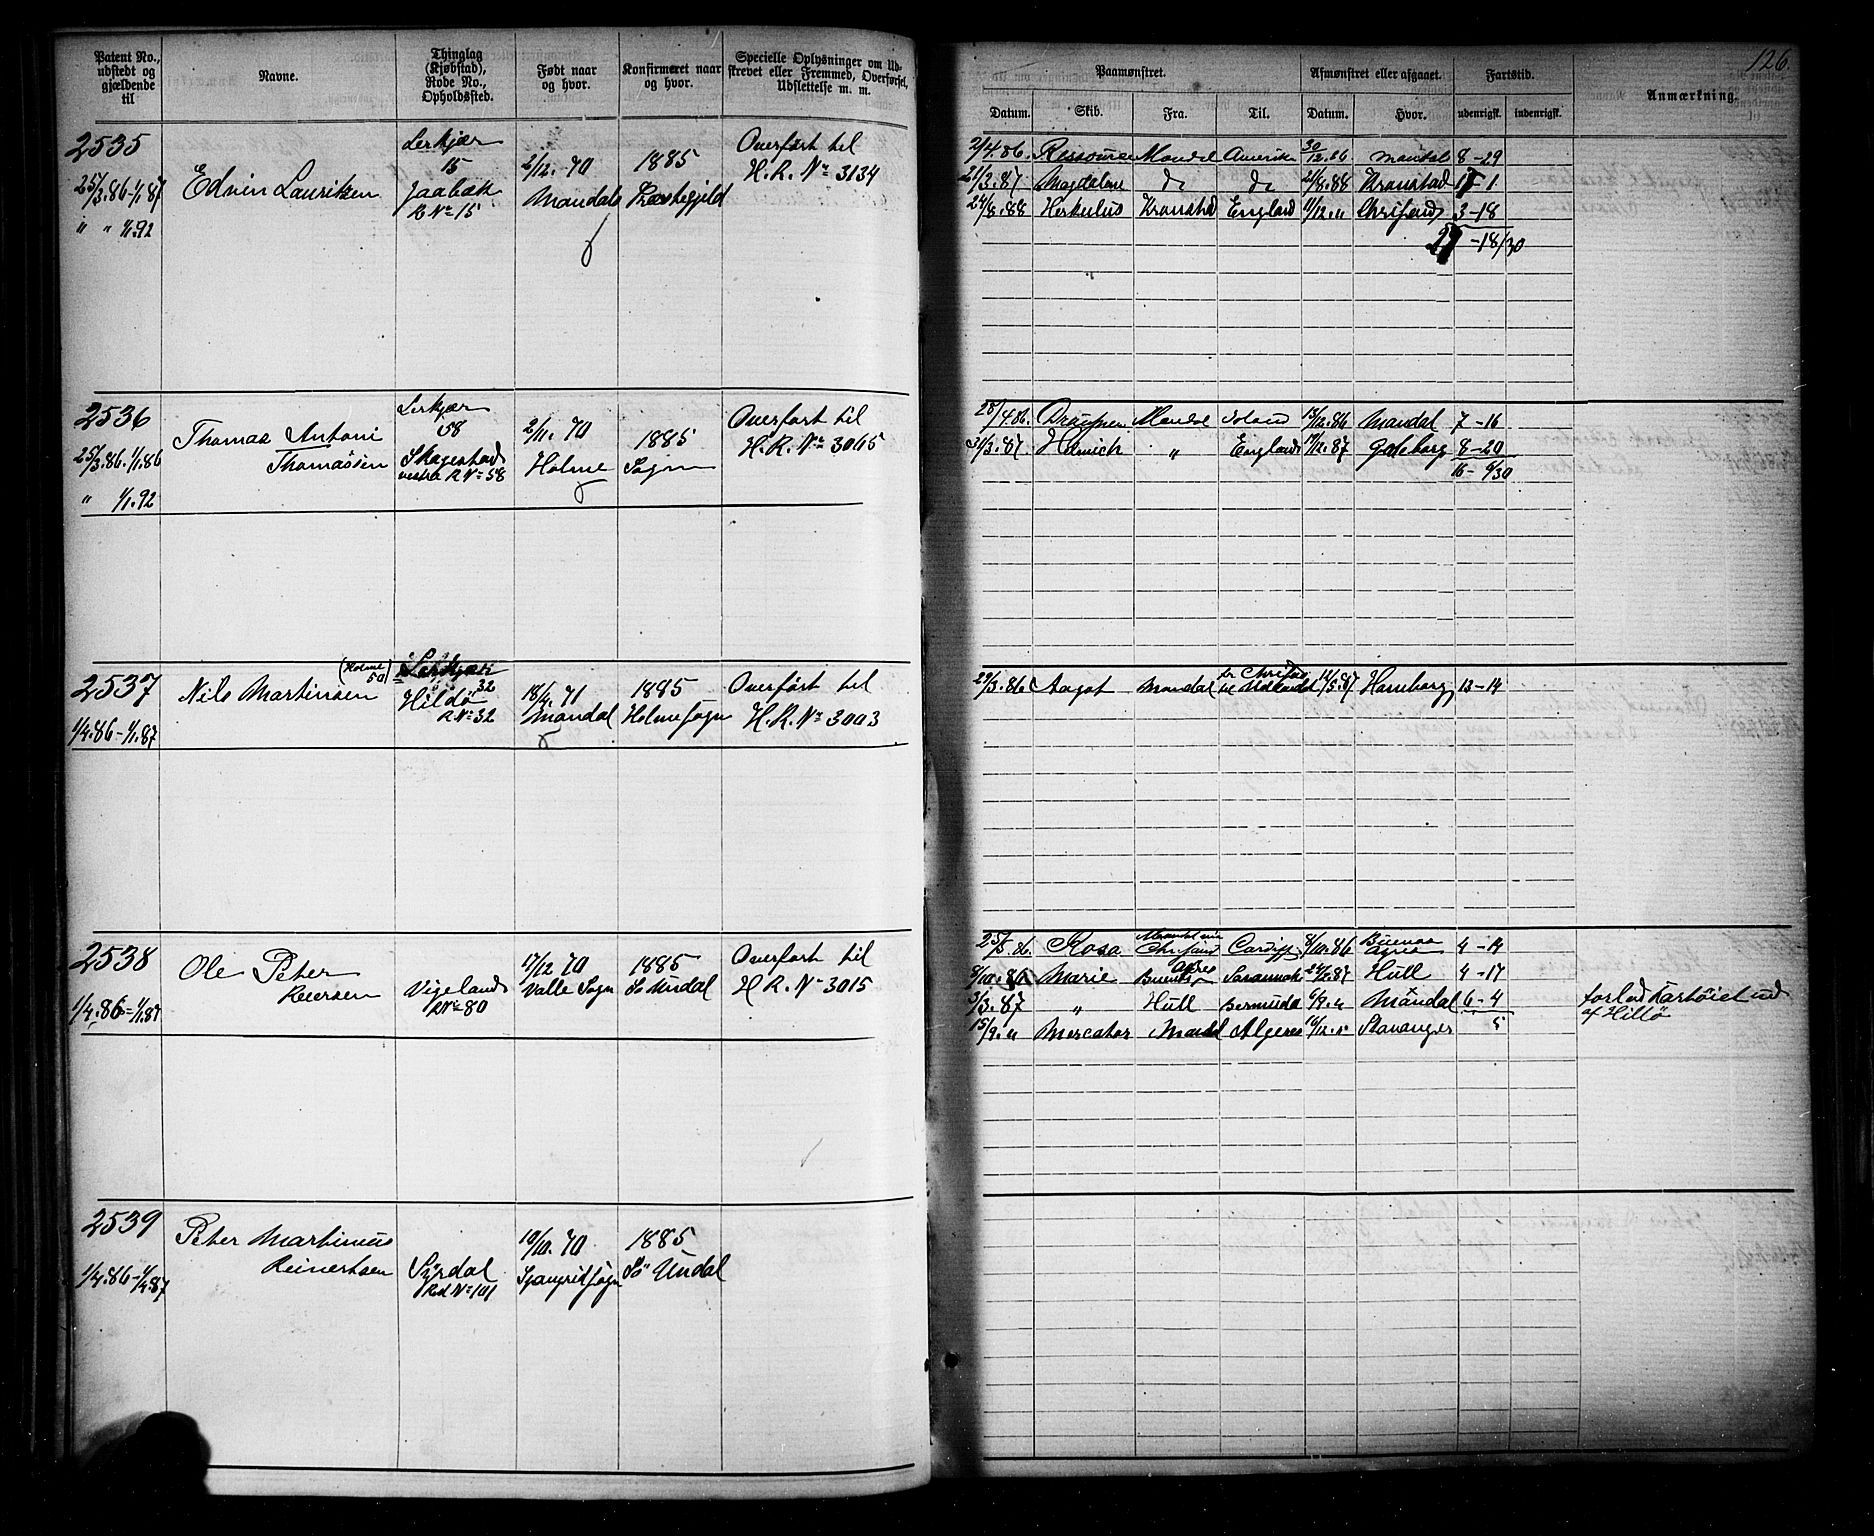 126
Patent No., udstedt og gjældende til
Navne.
Thinglag (Kjøbstad), Rode No., Opholdssted.
Født naar og hvor.
Konfirmeret naar og hvor.
Specielle Oplysninger om Udskrevet eller Fremmed, Overførsel, Udslettelse m. m.
Paamønstret.
Afmønstret eller afgaaet.
Fartstid.
Anmærkning.
Datum. Skib. Fra. Til. Datum. Hvor. udenrigsk. indenrigsk.
2535
25/3.86-1/1.87
" " 1/1.92
Edvin Lauritsen
15
R No 15
2/12.70
Mandals
1885
Overført til
H. R. No 3134
2/4.86 Ressource Mandal Amerika 30/12.86 Mandal 8-29
21/3.87 Magdalene do do 21/8.88 Kronstad 1
24/8.88 Herkulus Kronstad England 11/12." 3-18
-18/30
2536
25/3.86-1/1.86
" 1/1.92
Thomas Antoni
Thomassen
58
Skagestad
vestre R No 58
2/11.70
Holme
1885
Sogn
Overført til
H. R. No 3065
28/4.86 Mandal 15/12.86 Mandal 7-16
31/3.87 " England 17/12.87 Goteborg 8-20
16-6/30
2537
1/4.86-1/1.87
Nils Martinsen
(Holme 50)
32
Hildø
R No 32
18/4.71
Mandal
1885
Holme sogn
Overført til
H. R. No 3003
29/3.86 Aagot Mandal 13-14
2538
1/4.86-1/1.87
Ole Peter
Reiersen
Vigeland
R No 80
17/12 70
Valle Sogn
1885
So Undal
Overført til
H R. No 3015
25/5 86 Rosa Cardiff 8/10.86 Buenos Agres 4-14
8/10.86 Marie Buenos Agres 24/2.87 Hull 4-17
3/3.87 " Hull Bermuda 6/9." Mandal 6-4
forlod Fartøiet ud
af Hillø
15/9." Mercator Mandal Algeres Stavanger 5
2539
1/4.86-1/4.87
Peter Martinus
Reinertsen
Syrdal
Rd No 101
19/10.70
Spangrid sogn
1885
Sø Undal